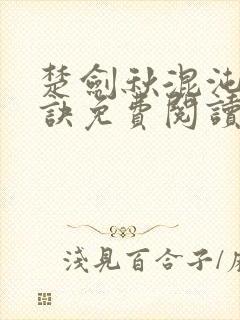 楚劍秋混沌
訣免費閱讀
淺見百合子/